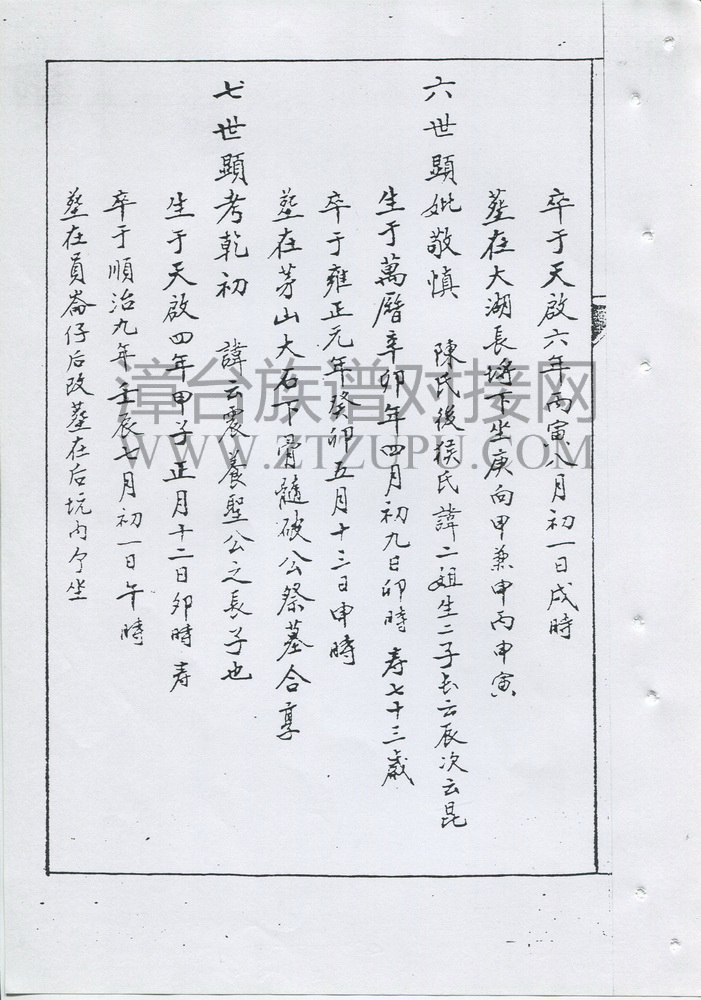 卒于天啟六年丙寅八月初一日戌時
塟在大湖長塝下坐庚向甲兼申丙申寅
六世顯妣敬慎 陳氏後侯氏諱二姐生二子長云辰次云昆
生于萬曆辛卯年四月初九日卯時 寿七十三歲
卒于雍正元年癸卯五月十三日申時
塟在茅山大石下骨髓破公祭墓合享
七世顯考乾初 諱云震養聖公之長子也
生于天啟四年甲子正月十二日卯時寿
卒于順治九年壬辰七月初一日午時
塟在員崙仔后改塟在后坑内坐
漳台族谱对接网
WWW.ZTZUPU.COM